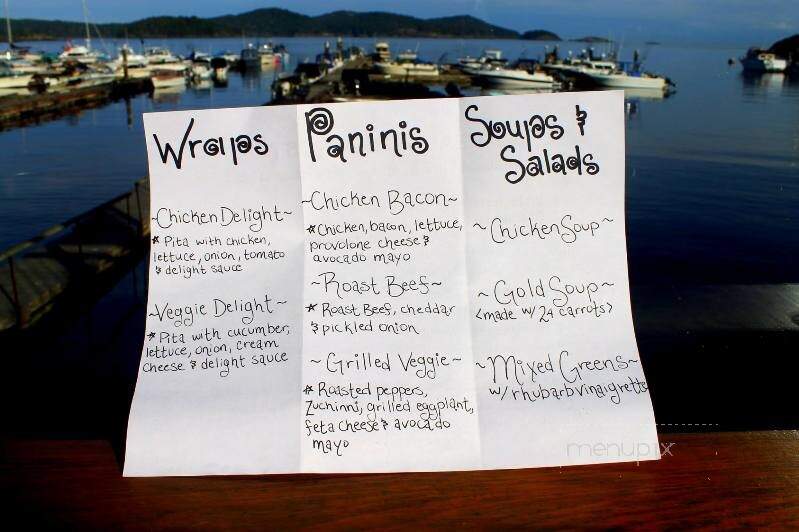 Wraps
~Chicken Delight~
* Pita with chicken,
lettuce, onion, tomato
& delight sauce
~Veggie Delight~
* Pita with cucumber,
lettuce, onion, cream
cheese & delight sauce
Paninis
~Chicken Bacon~
* Chicken, bacon, lettuce,
provolone cheese &
avocado mayo
~Roast Beef~
* Roast Beef, cheddar
& pickled onion
~Grilled Veggie~
* Roasted peppers,
Zuchinni, grilled eggplant,
feta cheese & avocado
mayo
Soups &
Salads
~Chicken Soup~
~Gold Soup~
<made w/ 24 carrots>
~Mixed Greens~
w/ rhubarb vinaigrette
menupix